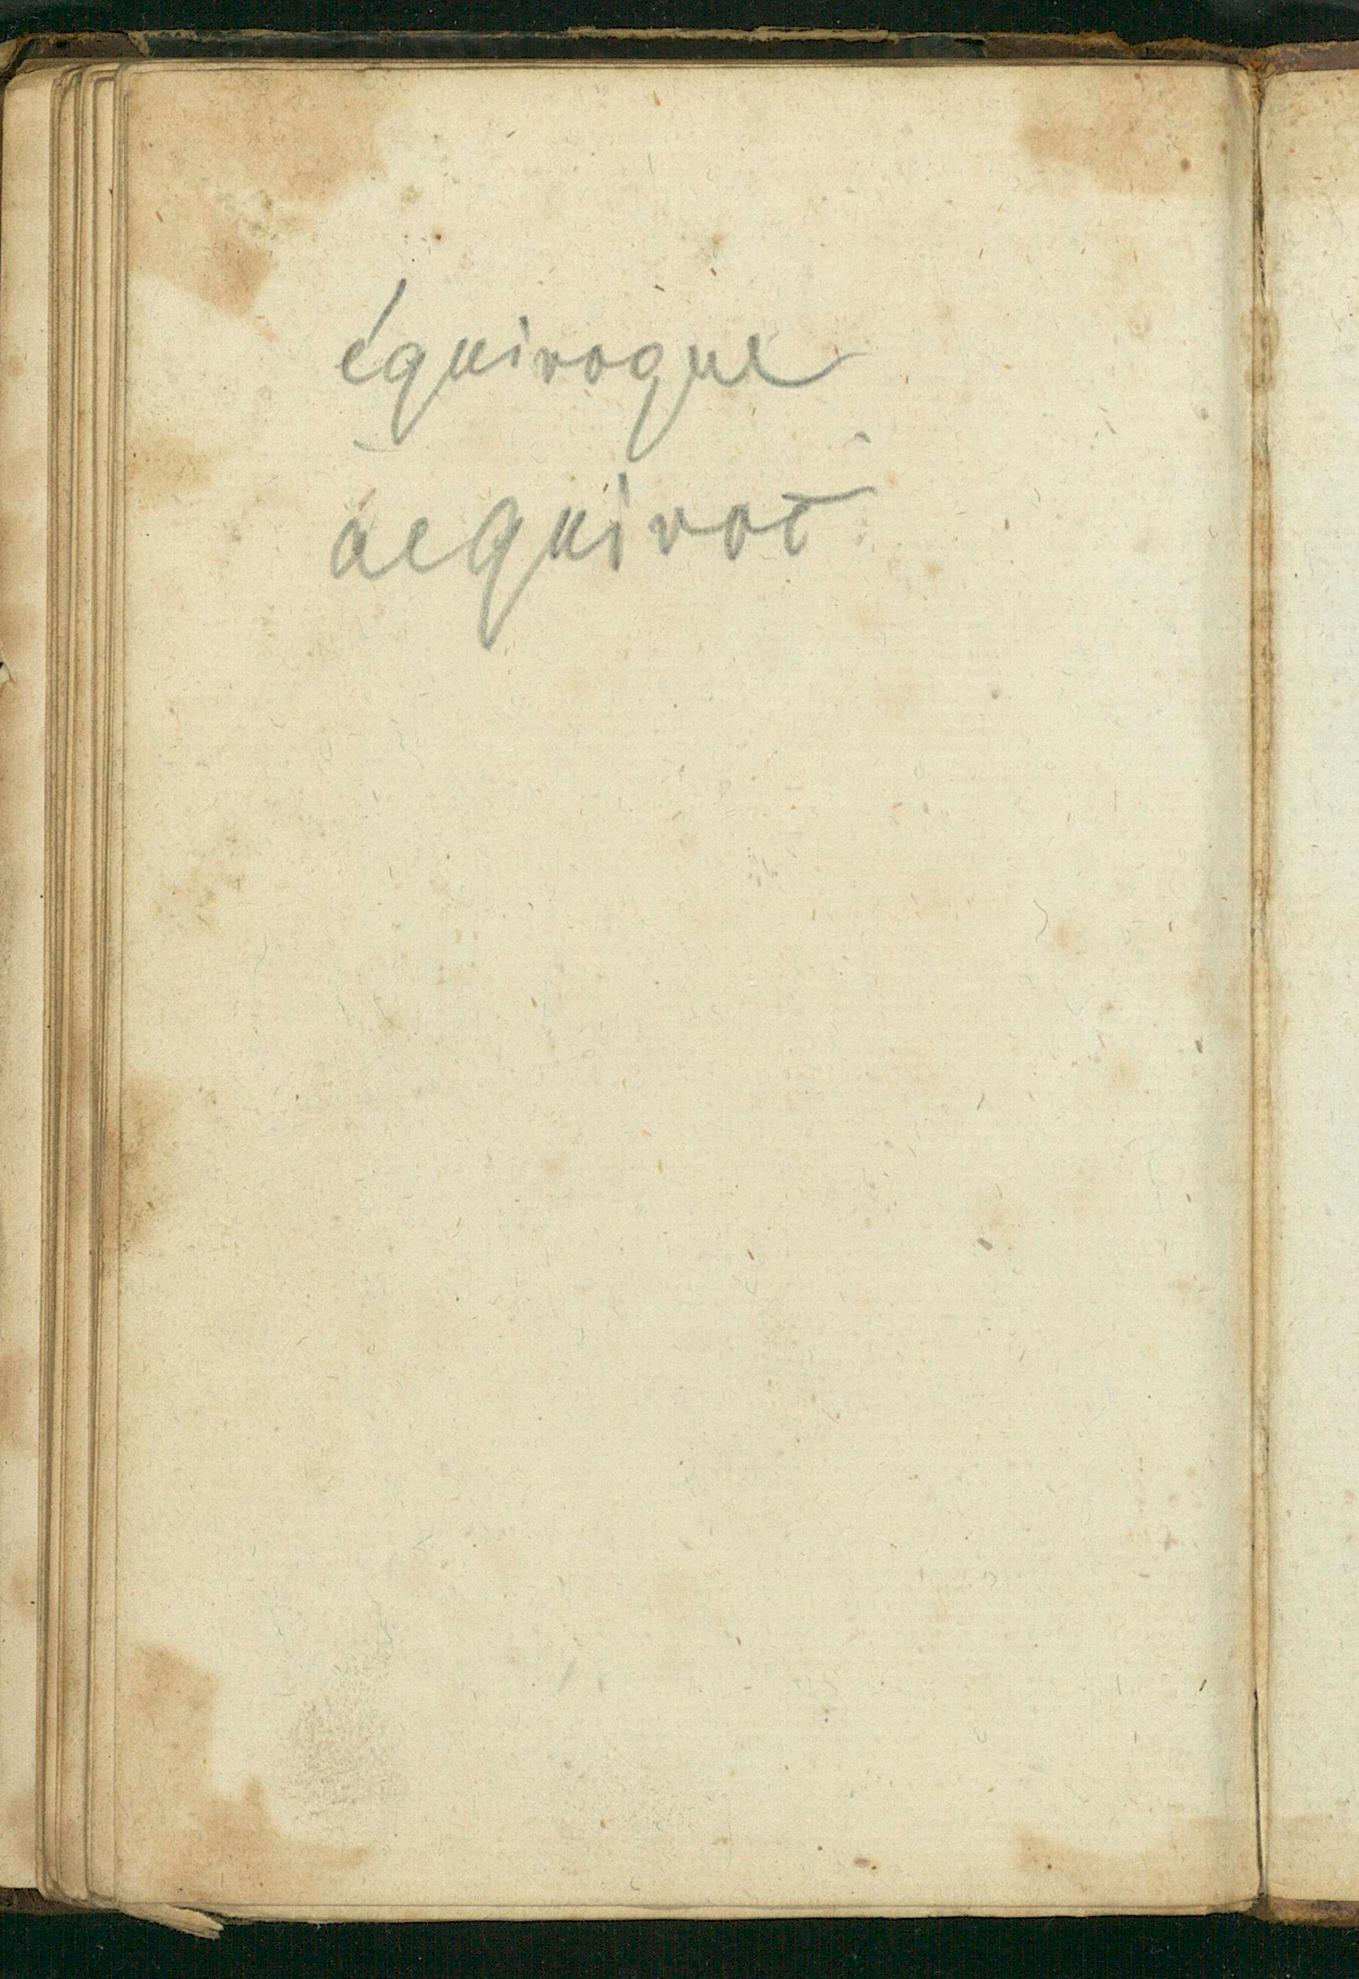 équivoque
aequivoc